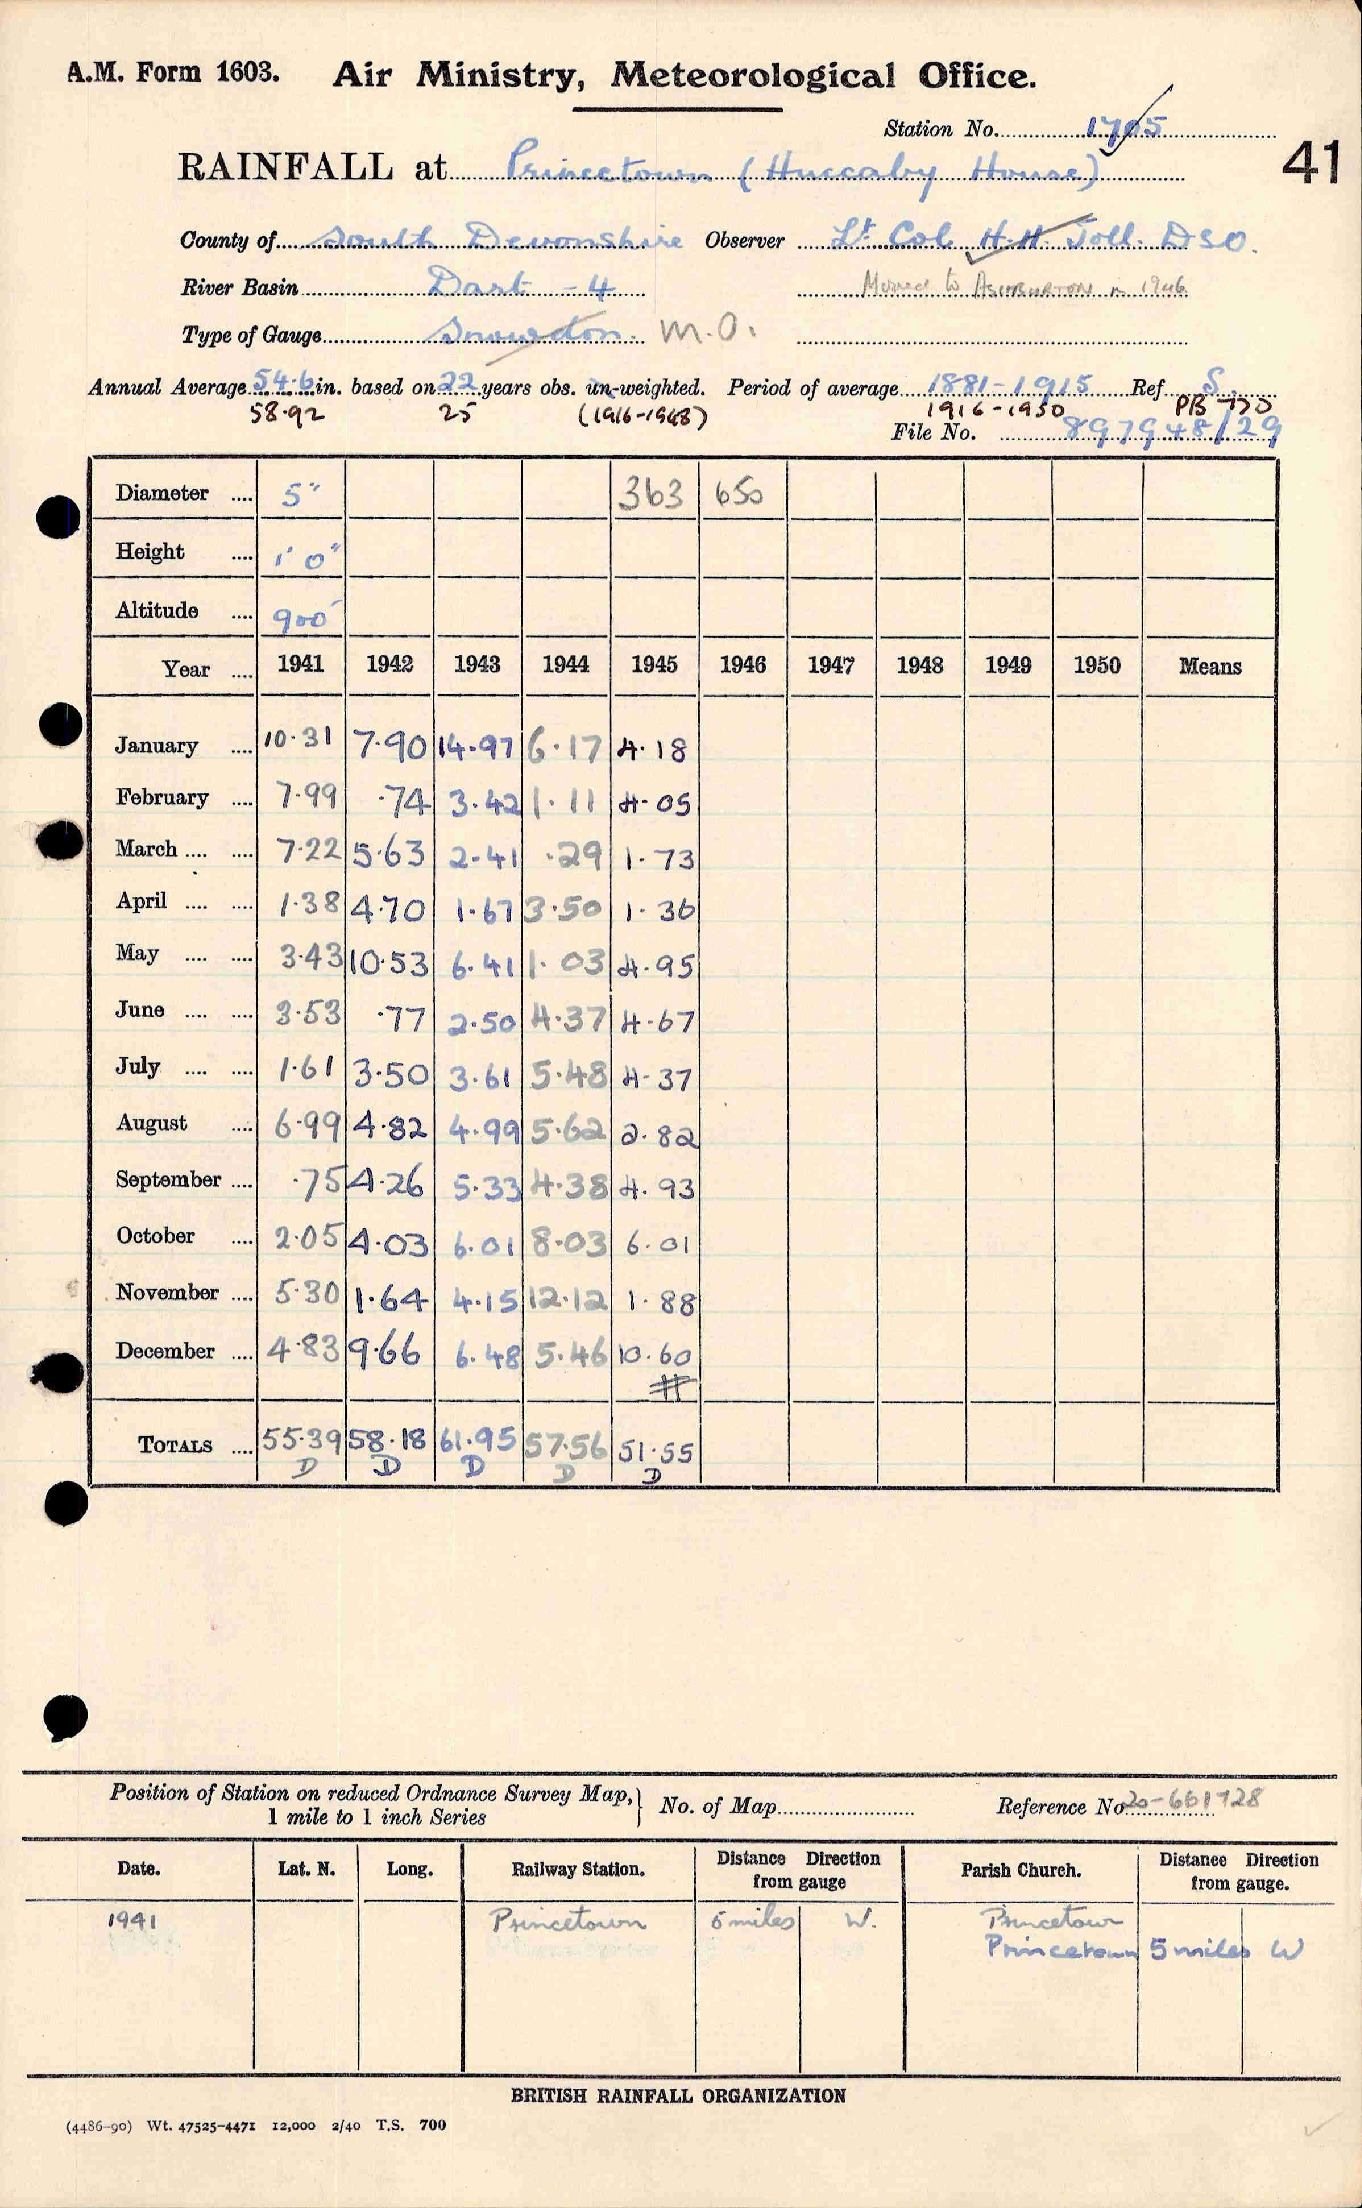 A.M. Form 1603. Air Ministry, Meteorological Office.
Station No. 1705
41
RAINFALL at Princetown (Huccaby House)
County of South Devonshire Observer Lt Col H.H. Joll. DSO.
River Basin Dart - 4 Moved to ASHBURTON in 1946
Type of Gauge Snowdon. M.O.
Annual Average 54.6 in. based on 22 years obs. un-weighted. Period of average 1881-1915 Ref S.
58.92 25 (1916-1948) 1916-1950 PB
File No. 897948/29
Diameter .... 5" 363 650
Height .... 1' 0"
Altitude .... 900'
Year .... 1941 1942 1943 1944 1945 1946 1947 1948 1949 1950 Means
January .... 10.31 7.90 14.97 6.17 4.18
February .... 7.99 .74 3.42 1.11 4.05
March .... .... 7.22 5.63 2.41 .29 1.73
April .... .... 1.38 4.70 1.67 3.50 1.36
May .... .... 3.43 10.53 6.41 1.03 4.95
June .... .... 3.53 .77 2.50 4.37 4.67
July .... .... 1.61 3.50 3.61 5.48 4.37
August .... 6.99 4.82 4.99 5.62 2.82
September .... .75 4.26 5.33 4.38 4.93
October .... 2.05 4.03 6.01 8.03 6.01
November .... 5.30 1.64 4.15 12.12 1.88
December .... 4.83 9.66 6.48 5.46 10.60
TOTALS .... 55.39 58.18 61.95 57.56 51.55
D D D D D
Position of Station on reduced Ordnance Survey Map, 1 mile to 1 inch Series } No. of Map Reference No 20-661728
Date. Lat. N. Long. Railway Station. Distance Direction from gauge Parish Church. Distance Direction from gauge.
1941 Princetown 5 miles W. Princetown
Princetown 5 miles W
BRITISH RAINFALL ORGANIZATION
(4486-90) Wt. 47525-4471 12,000 2/40 T.S. 700